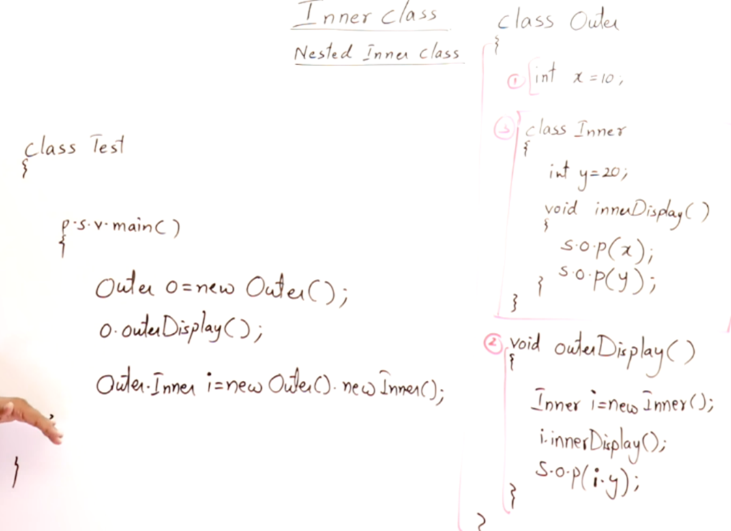 Inner class
Nested Inner class
class Test
{
p.s.v.main()
{
Outer o=new Outer();
o.outerDisplay();
Outer.Inner i=new Outer().new Inner();
}
class Outer
{
① int x=10;
③ class Inner
{
int y=20;
void innerDisplay()
{
s.o.p(x);
s.o.p(y);
}
}
② void outerDisplay()
{
Inner i=new Inner();
i.innerDisplay();
s.o.p(i.y);
}
}